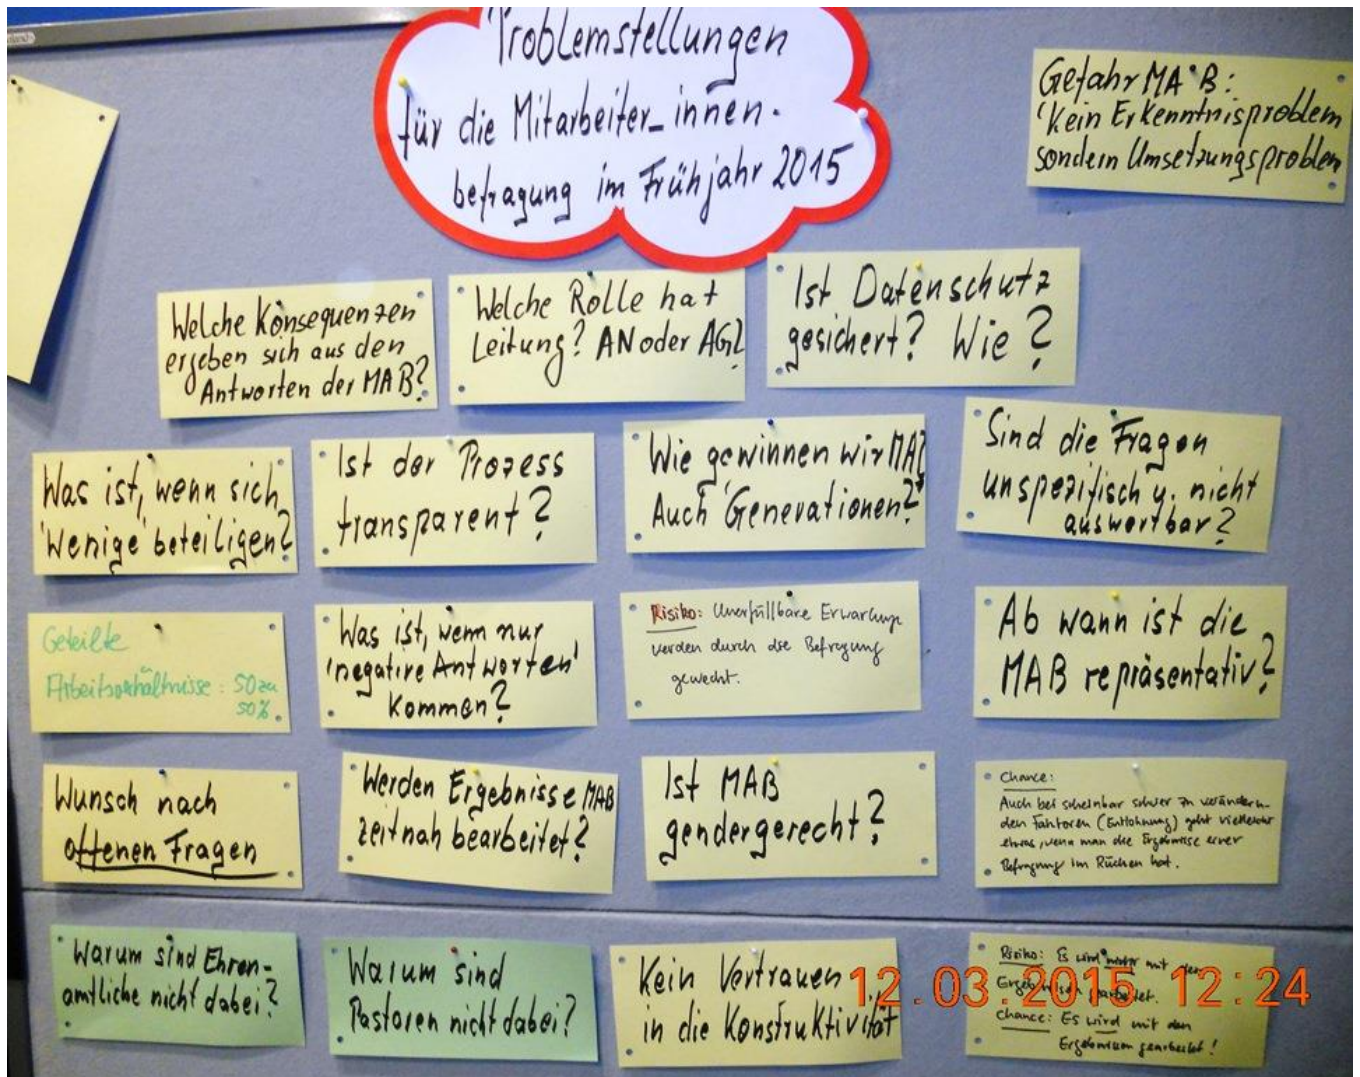 Problemstellungen
für die Mitarbeiter_innen-
befragung im Frühjahr 2015
Gefahr MAB:
'Kein Erkenntnisproblem
sondern Umsetzungsproblem
Welche Konsequenzen
ergeben sich aus den
Antworten der MAB?
Welche Rolle hat
Leitung? AN oder AG?
Ist Datenschutz
gesichert? Wie?
Was ist, wenn sich
'Wenige' beteiligen?
Ist der Prozess
transparent?
Wie gewinnen wir MA?
Auch 'Generationen'?
Sind die Fragen
unspezifisch u. nicht
auswertbar?
Geteilte
Arbeitsverhältnisse: 50 zu
50%
Was ist, wenn nur
'negative Antworten'
kommen?
Risiko: Unerfüllbare Erwartunge
werden durch die Befragung
geweckt.
Ab wann ist die
MAB repräsentativ?
Wunsch nach
offenen Fragen
Werden Ergebnisse MAB
zeitnah bearbeitet?
Ist MAB
gendergerecht?
Chance:
Auch bei scheinbar schwer zu verändern-
den Faktoren (Entlohnung) geht vielleicht
etwas, wenn man die Ergebnisse einer
Befragung im Rücken hat.
Warum sind Ehren-
amtliche nicht dabei?
Warum sind
Pastoren nicht dabei?
Kein Vertrauen
in die Konstruktivität
Risiko: Es wird nicht mit den
Ergebnissen gearbeitet.
Chance: Es wird mit den
Ergebnissen gearbeitet!
12.03.2015 12:24